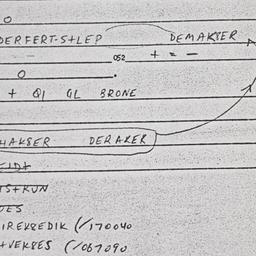 O
DERFERT-S+LEP DEMAKSER
052 + = -
O .
+ QI GL BRONE
HAKSER DERAKER
EID+
TS+KUN
DES
IREKSEDIK (/170040
+VEKSES (/067090